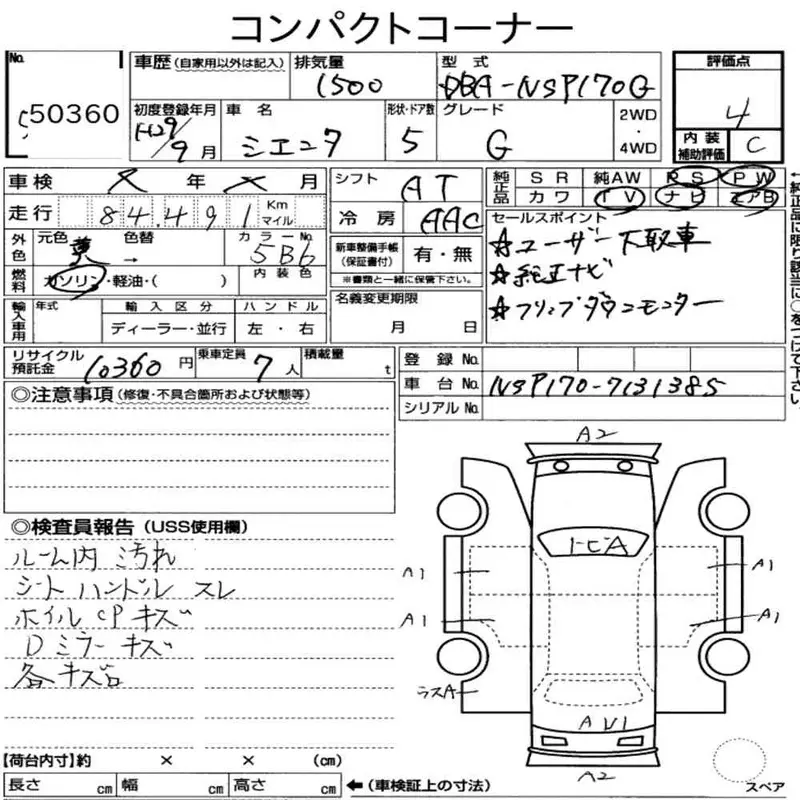 コンパクトコーナー
No. 50360
車歴 (自家用以外は記入) 排気量 1500 型式 DBA-NSP170G
初度登録年月 H29/9月 車名 シエンタ 形状・ドア数 5 グレード G 2WD・4WD
評価点 4
内装補助評価 C
車検 年 月 シフト AT
純正品 SR 純AW PS PW
カワ TV ナビ エアB
走行 84,491 Km マイル 冷房 AAC
セールスポイント
☆ユーザー下取車
☆純正ナビ
☆フリップダウンモニター
外色 元色 黄 → 色替 カラーNo. 5B6
新車整備手帳(保証書付) 有・無
※書類と一緒に保管下さい。
燃料 ガソリン・軽油・( ) 内装色
名義変更期限 月 日
輸入車用 年式 輸入区分 ハンドル
ディーラー・並行 左・右
リサイクル預託金 10360円 乗車定員 7人 積載量 t
登録No.
車台No. NSP170-7131385
シリアルNo.
◎注意事項(修復・不具合箇所および状態等)
◎検査員報告(USS使用欄)
ルーム内 汚れ
シート ハンドル スレ
ホイルCPキズ
Dミラーキズ
各キズ凹
A2
トビA
A1
A1
A1
A1
ラスA
AW1
A2
スペア
【荷台内寸】約 × × (cm)
長さ cm 幅 cm 高さ cm ←(車検証上の寸法)